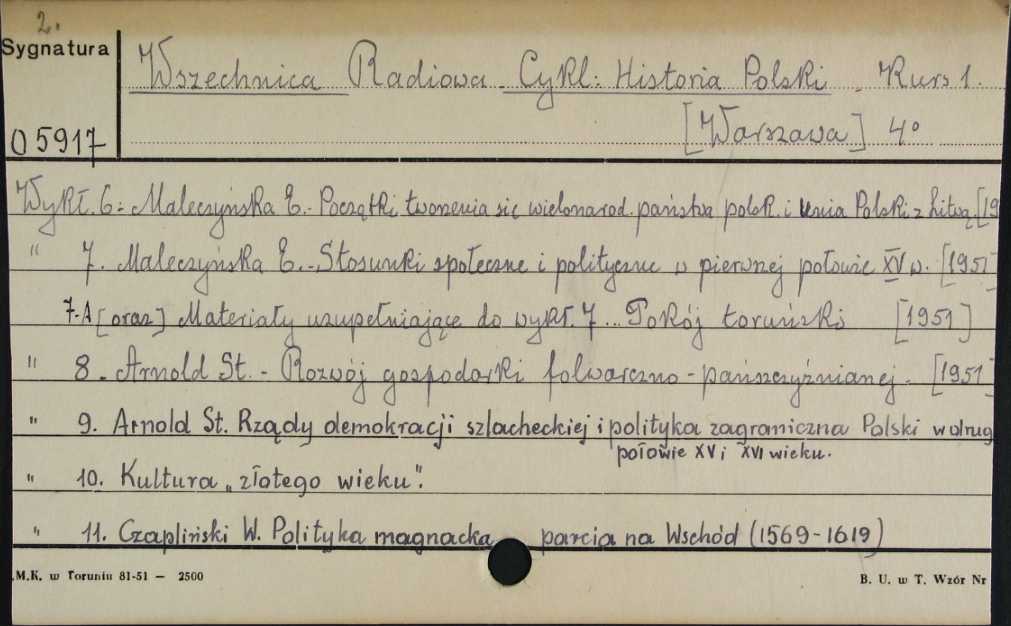 2.
Sygnatura
Wszechnica Radiowa. Cykl: Historia Polski. Kurs 1.
O5917
[Warszawa] 4°
Wykł. 6: Maleczyńska E. - Początki tworzenia się wielonarod. państwa polsk. i unia Polski z Litwą. [19
" 7. Maleczyńska E. - Stosunki społeczne i polityczne w pierwszej połowie XV w. [1951]
7-A [oraz] Materiały uzupełniające do wykł. 7 ... Pokój toruński [1951]
" 8. Arnold St. - Rozwój gospodarki folwarczno - pańszczyźnianej. [1951]
" 9. Arnold St. Rządy demokracji szlacheckiej i polityka zagraniczna Polski w drug
połowie XV i XVI wieku.
" 10. Kultura „złotego wieku".
" 11. Czapliński W. Polityka magnacka parcia na Wschód (1569-1619)
.M.K. w Toruniu 81-51 — 2500
B. U. w T. Wzór Nr